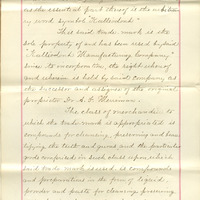 as the essential part thereof is the arbitrary
word symbol
This said trade mark is the
sole property of and has been used by said
Manufacturing Company,
since its incorporation, the right
and is held by said Company as
the successor and of the original
proprietor Dr. A. G.
The class of merchandise to
which the trade mark is appropriated is
compounds for cleansing, preserving and
the teeth and gums and the particular
goods comprised in such class upon which
said trade mark is used is compounds
and preparations in the form of liquids
powder and paste for cleansing, preserving